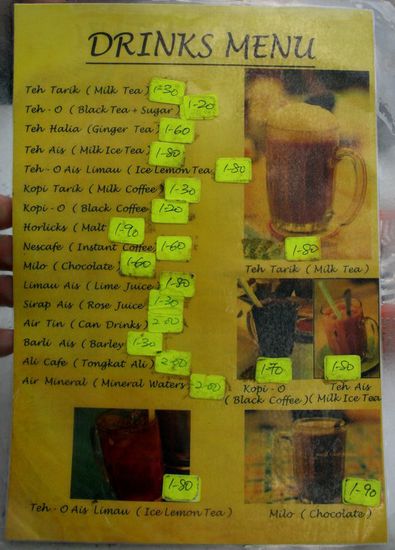 DRINKS MENU
Teh Tarik ( Milk Tea ) 1-30
Teh - O ( Black Tea + Sugar 1-20
Teh Halia ( Ginger Tea ) 1-60
Teh Ais ( Milk Ice Tea ) 1-80
Teh - O Ais Limau ( Ice Lemon Tea 1-80
Kopi Tarik ( Milk Coffee ) 1-30
Kopi - O ( Black Coffee 1-20
Horlicks ( Malt 1-90
Nescafe ( Instant Coffee 1-60
Milo ( Chocolate ) 1-60
Limau Ais ( Lime Juice ) 1-80
Sirap Ais ( Rose Juice 1-30
Air Tin ( Can Drinks ) 2-00
Barli Ais ( Barley 1-30
Ali Cafe ( Tongkat Ali ) 2-00
Air Mineral ( Mineral Waters 2-00
1-80
Teh Tarik ( Milk Tea )
1-70
Kopi - O
( Black Coffee )
1-80
Teh Ais
( Milk Ice Tea
1-80
Teh - O Ais Limau ( Ice Lemon Tea )
1-90
Milo ( Chocolate )